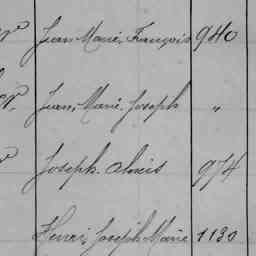 Jean, Marie, François 940
Jean, Marie, Joseph "
Joseph, Aloïs 974
Henri, Joseph Marie 1130